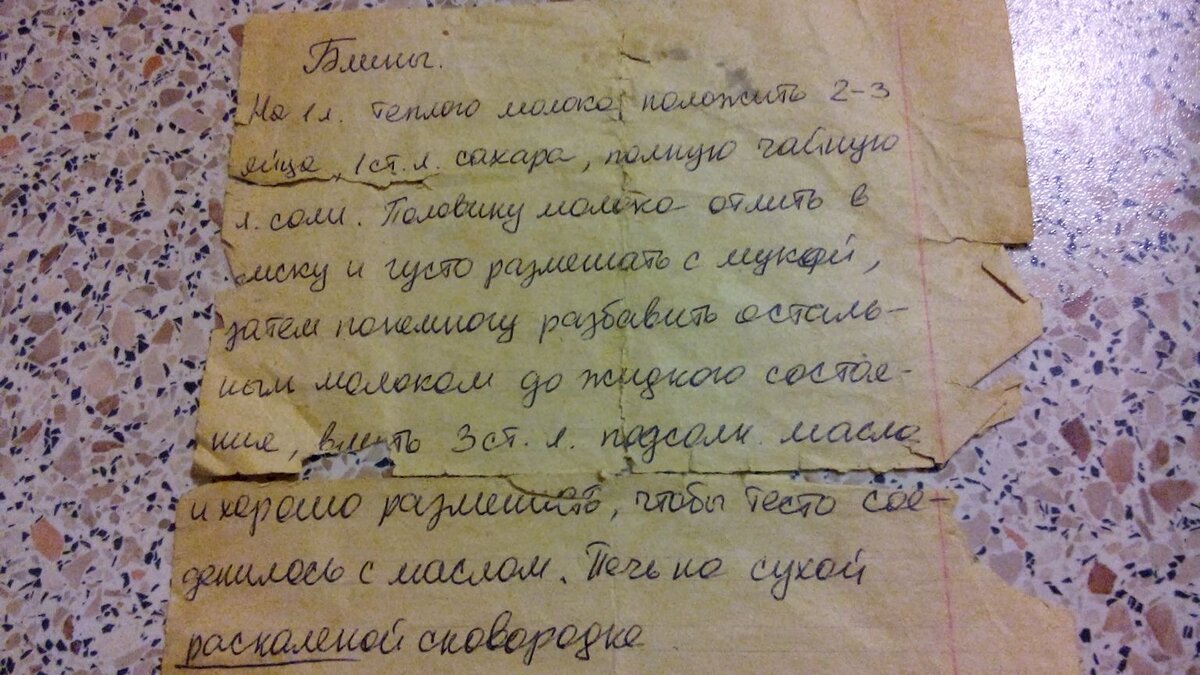 Блины.
На 1 л. теплого молока положить 2-3
яйца, 1 ст. л. сахара, полную чайную
л. соли. Половину молока отлить в
миску и густо размешать с мукой,
затем понемногу разбавить осталь-
ным молоком до жидкого состоя-
ния, влить 3 ст. л. подсолн. масла
и хорошо размешать, чтобы тесто сое-
денилось с маслом. Печь на сухой
раскаленой сковородке